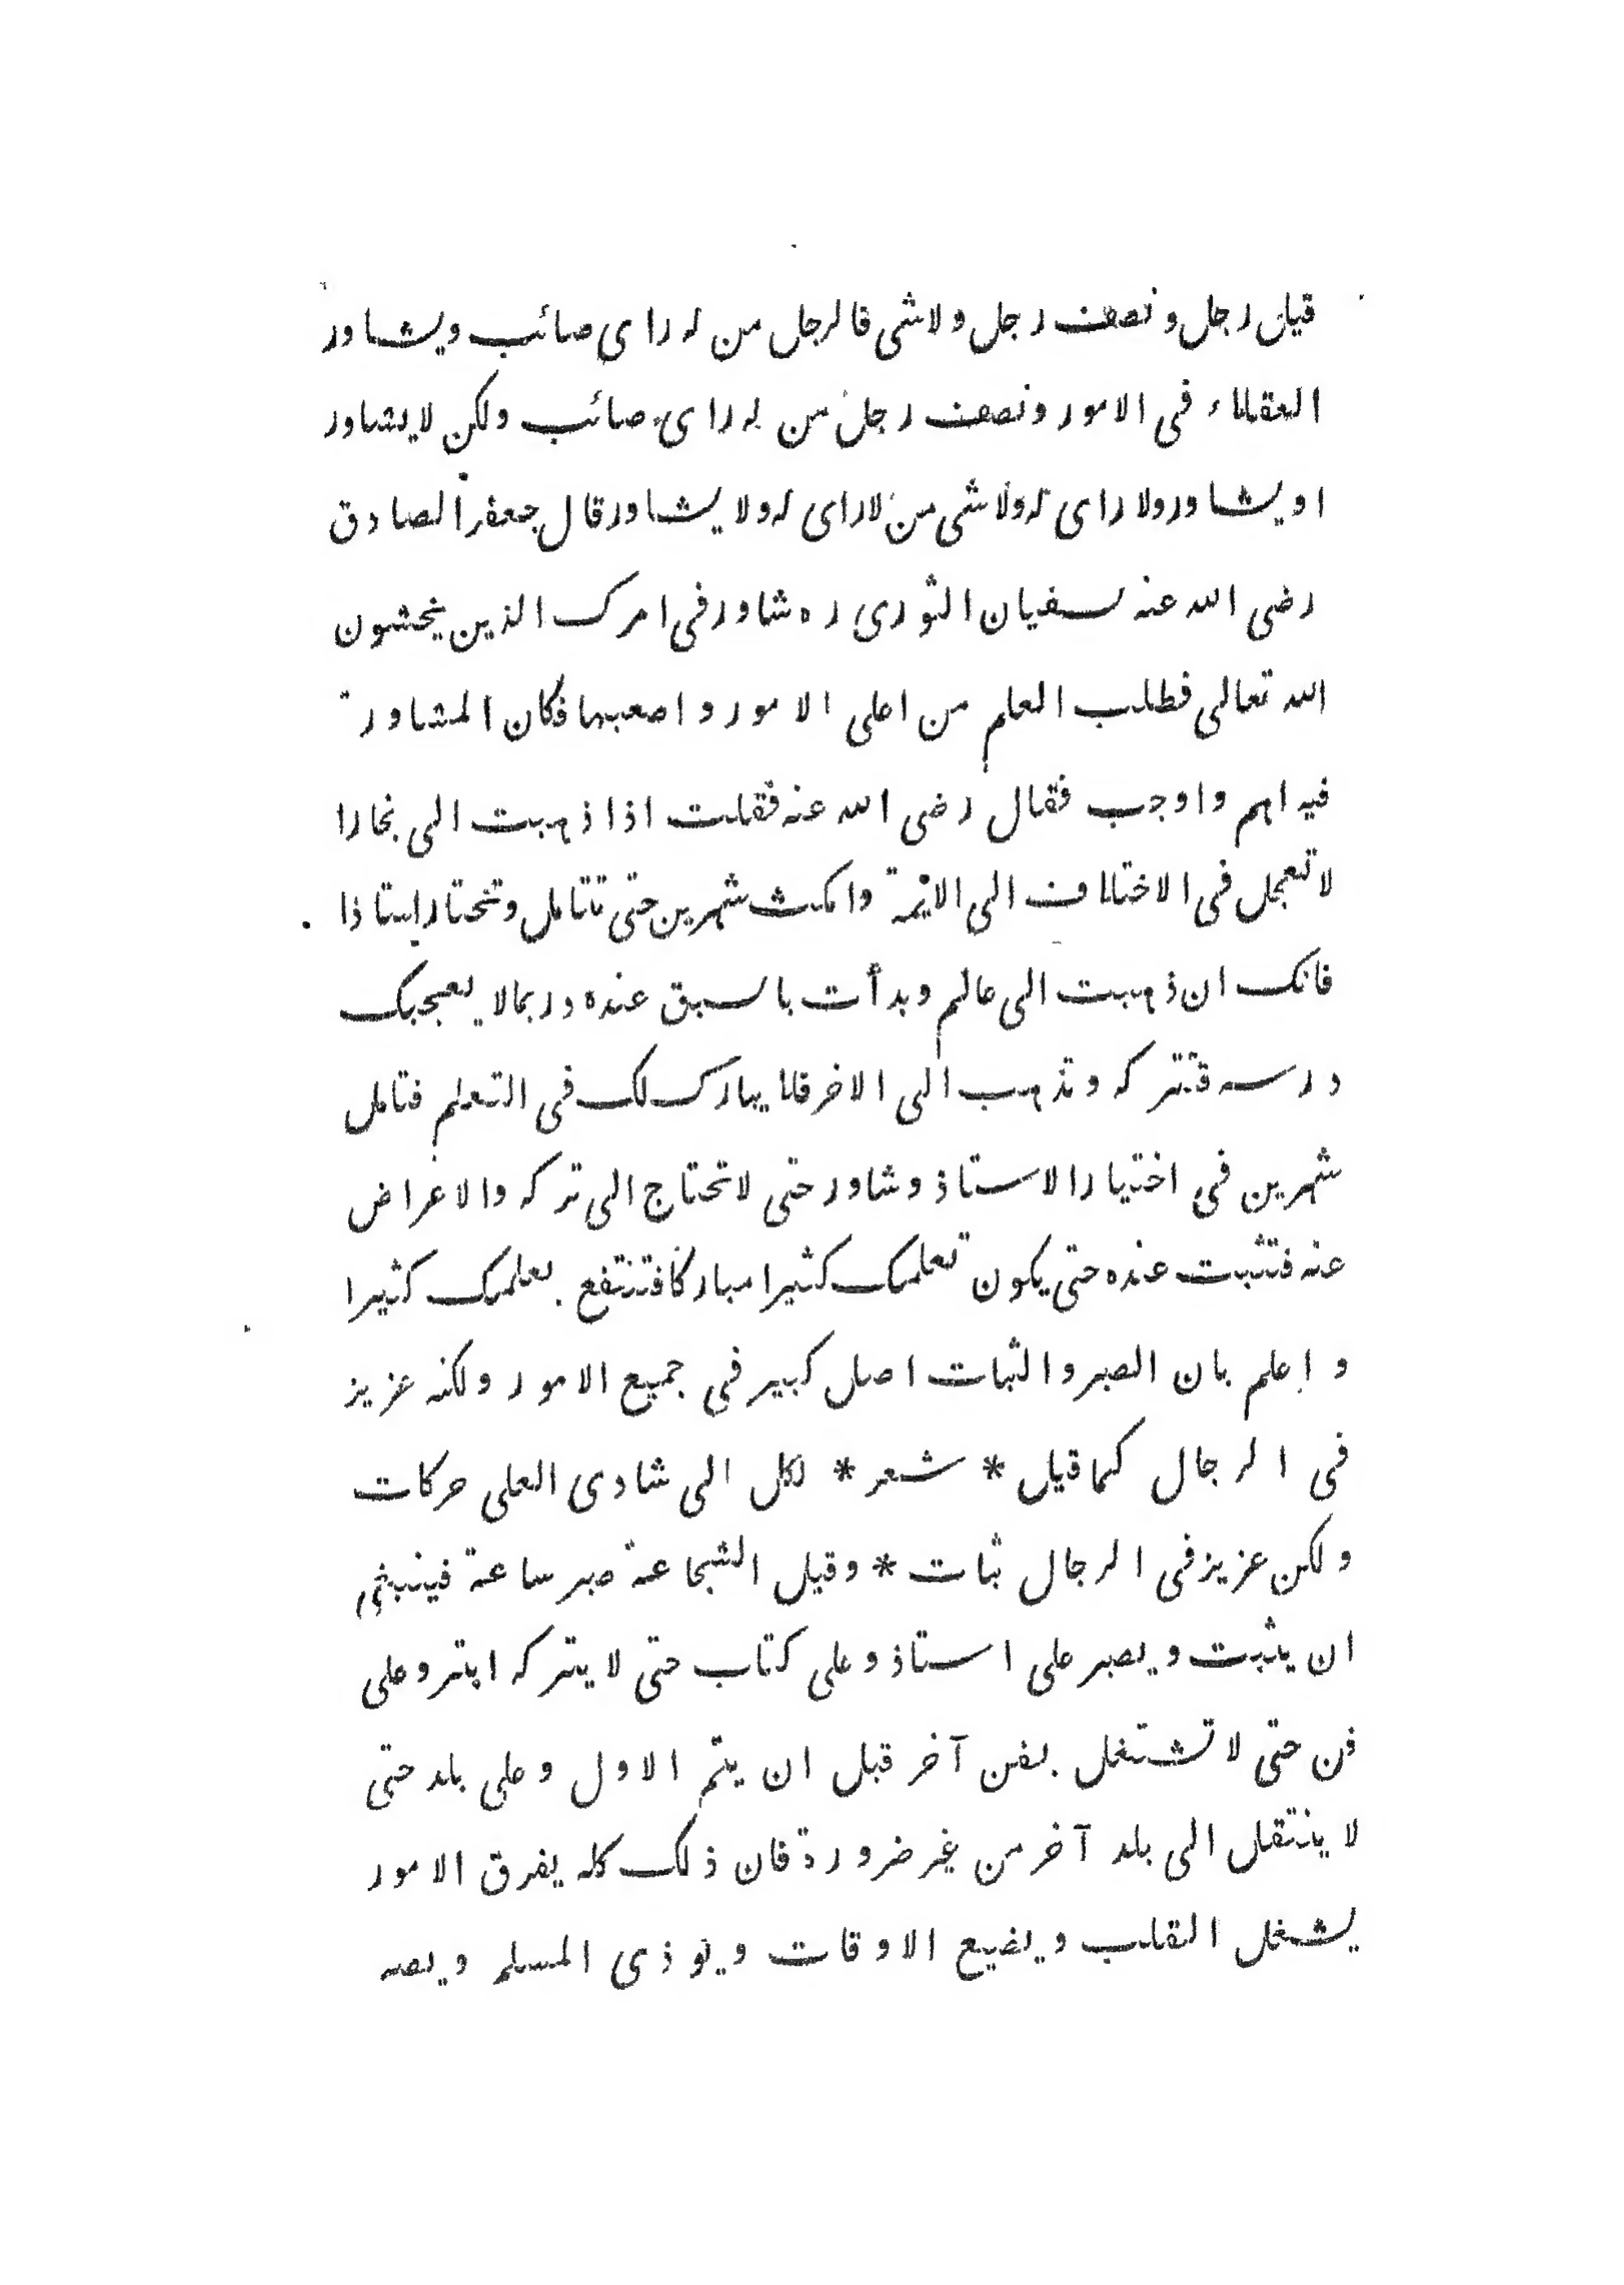 قيل رجل ونصف رجل ولاشى فالرجل من له راى صائب ويشاور
العقلاء فى الامور ونصف رجل من له راى صائب ولكن لايشاور
اويشاورولا راى له ولاشى من لاراى له ولا يشاور قال جعفر الصادق
رضى الله عنه لسفيان الثورى ره شاور فى امرك الذين يخشون
الله تعالى فطلب العلم من اعلى الامور واصعبها فكان المشاورة
فيه اهم واوجب فقال رضى الله عنه فقلت اذا ذهبت الى بخارا
لا تعجل فى الاختلاف الى الائمة وامكث شهرين حتى تتامل وتختار استاذا
فانك ان ذهبت الى عالم وبدأت بالسبق عنده وربمالا يعجبك
درسه فتتركه وتذهب الى الاخر فلا يبارك لك فى التعلم فتامل
شهرين فى اختيار الاستاذ وشاور حتى لاتحتاج الى تركه والاعراض
عنه فتثبت عنده حتى يكون تعلمك كثيرا مباركا فتنتفع بعلمك كثيرا
واعلم بان الصبر والثبات اصل كبير فى جميع الامور ولكنه عزيز
فى الرجال كما قيل * شعر * لكل الى شادى العلى حركات
ولكن عزيز فى الرجال ثبات * وقيل الشجاعة صبر ساعة فينبغى
ان يثبت ويصبر على استاذ وعلى كتاب حتى لا يتركه ابتر وعلى
فن حتى لا تشتغل بفن آخر قبل ان يتم الاول وعلى بلد حتى
لا ينتقل الى بلد آخر من غير ضرورة فان ذلك كله يفرق الامور
يشغل القلب ويضيع الاوقات ويوذى المسلم ويصبر